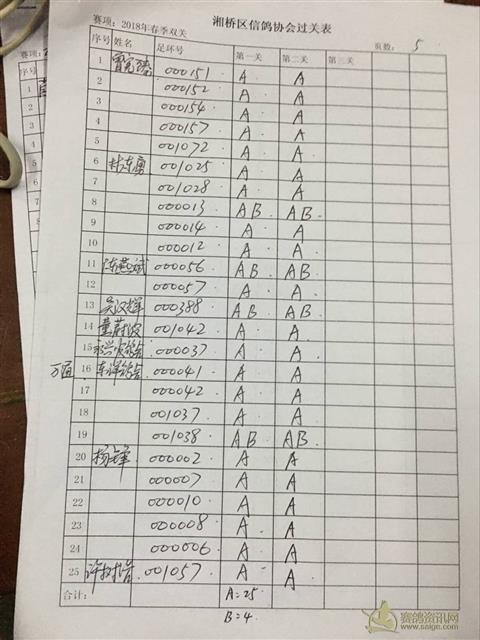 湘桥区信鸽协会过关表
赛项: 2018年春季双关 页数: 5
序号 姓名 足环号 第一关 第二关 第三关
1 000151 A A
2 000152 A A
3 000154 A A
4 000157 A A
5 001072 A A
6 林东勇 001025 A A
7 001028 A A
8 000013 AB AB
9 000014 A A
10 000012 A A
11 陈燕斌 000056 AB AB
12 000057 A A
13 吴汉辉 000388 AB AB
14 001042 A A
15 000037 A A
16 000041 A A
17 000042 A A
18 001037 A A
19 001038 AB AB
20 000002 A A
21 000007 A A
22 000010 A A
23 000008 A A
24 000006 A A
25 001057 A A
合计: A=25
B=4
赛鸽资讯网
www.saige.com